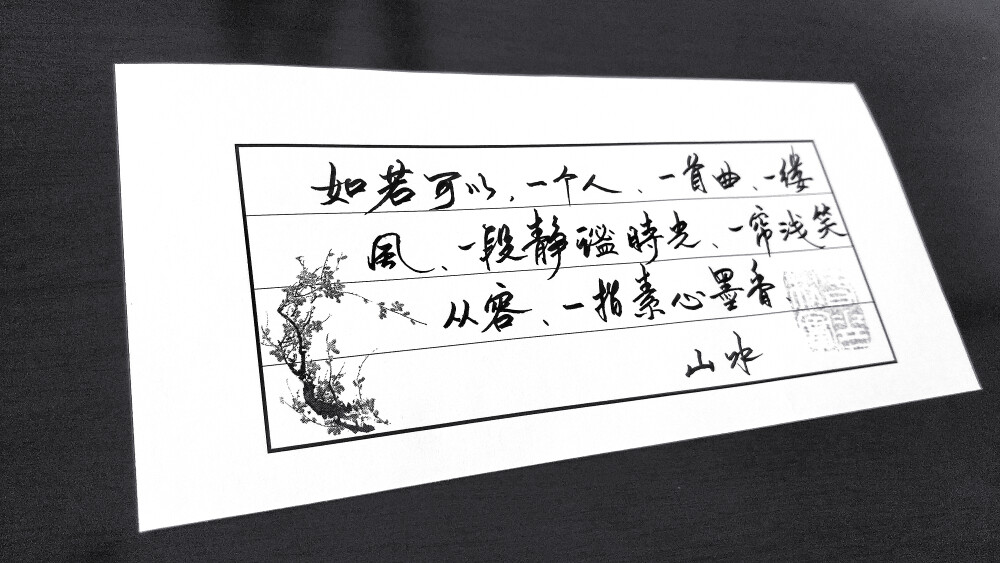 如若可以,一个人、一首曲、一缕
風、一段静谧時光、一帘浅笑
从容、一指素心墨香、
山水